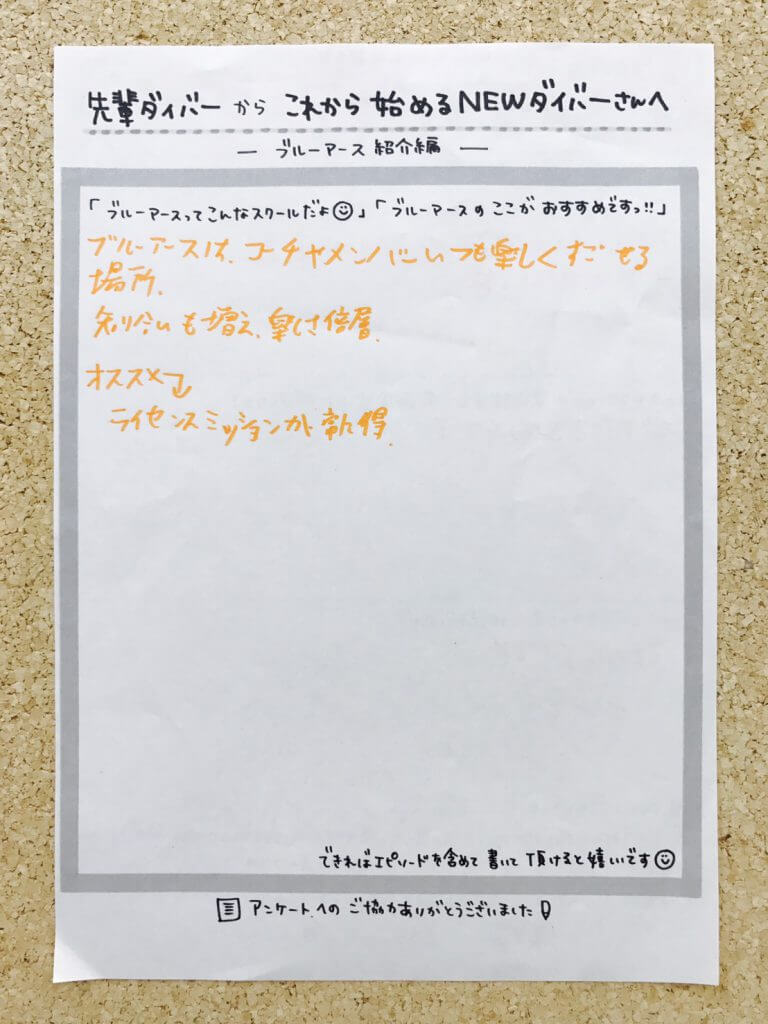 先輩ダイバーから これから 始めるNEWダイバーさんへ
― ブルーアース 紹介編 ―
「ブルーアースってこんなスクールだよ☺」「ブルーアースのここが おすすめですっ!!」
ブルーアースは、コーチヤメンバーいつも楽しくすごせる
場所、
知り合いも増え、楽しさ倍層、
オススメ
ライセンスミッションが
できればエピソードを含めて 書いて 頂けると嬉しいです☺
アンケートへの ご協力ありがとうございました